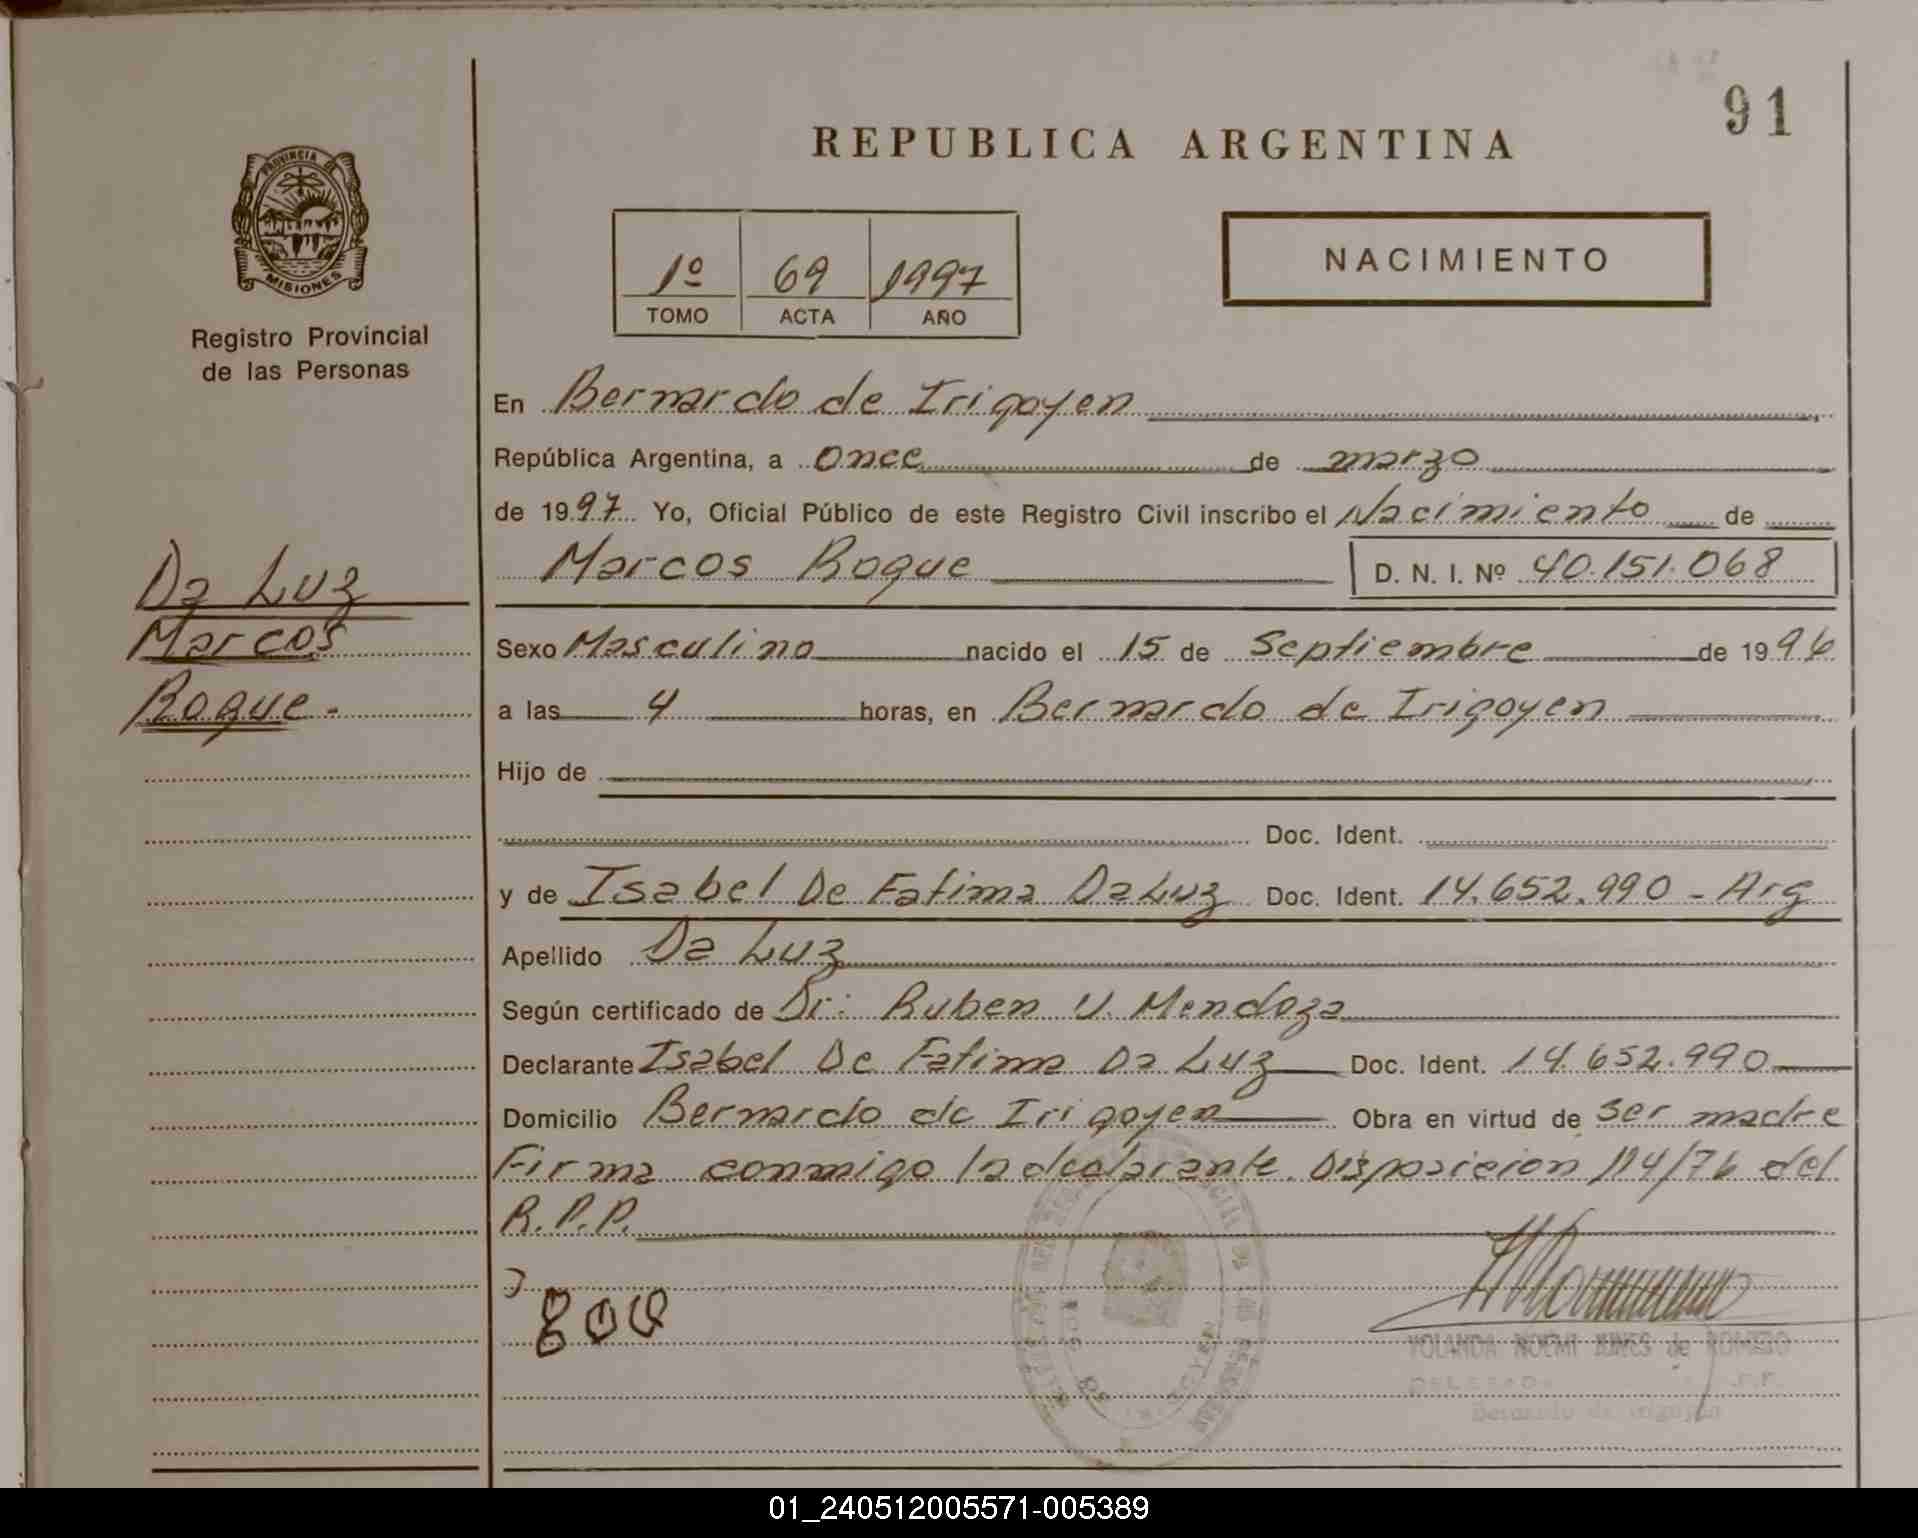 91
REPUBLICA ARGENTINA
PROVINCIA DE
MISIONES
Registro Provincial
de las Personas
1º 69 1997
TOMO ACTA AÑO
NACIMIENTO
En Bernardo de Irigoyen
República Argentina, a once de marzo
de 1997 Yo, Oficial Público de este Registro Civil inscribo el Nacimiento de
Marcos Roque D. N. I. Nº 40.151.068
Da Luz
Marcos
Roque.-
Sexo Masculino nacido el 15 de Septiembre de 1996
a las 4 horas, en Bernardo de Irigoyen
Hijo de
Doc. Ident.
y de Isabel De Fatima Da Luz Doc. Ident. 14.652.990 - Arg
Apellido Da Luz
Según certificado de Dr: Ruben V. Mendoza
Declarante Isabel De Fatima Da Luz Doc. Ident. 14.652.990
Domicilio Bernardo de Irigoyen Obra en virtud de ser madre
Firma conmigo la declarante. Disposicion 114/76 del
R.P.P.
YOLANDA NOEMI JUNES de ROMERO
Bernardo de Irigoyen
01_240512005571-005389